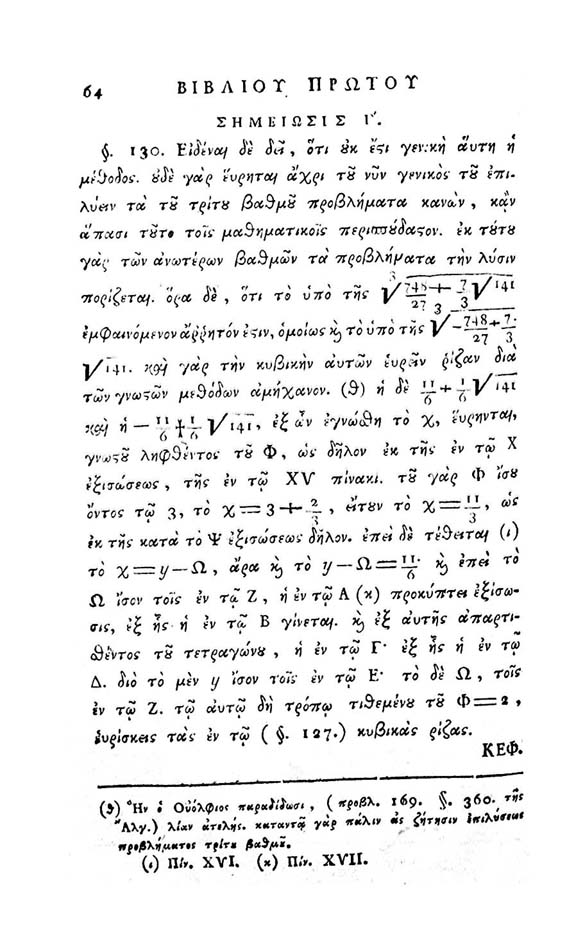 64 ΒΙΒΛΙΟΥ ΠΡΩΤΟΥ
ΣΗΜΕΙΩΣΙΣ Ι΄.
§. 130. Εἰδέναι δὲ δεῖ, ὅτι ὐκ ἔϛι γενικὴ ἅυτη ἡ
μέθοδος. ὐδὲ γὰρ ἕυρηται ἄχρι τῦ νῦν γενικὸς τῦ ἐπι-
λύειν τὰ τῦ τρίτυ βαθμῦ προβλήματα κανὼν, κᾂν
ἅπασι τῦτο τοῖς μαθηματικοῖς περισπύδαϛον. ἐκ τύτυ
γὰρ τῶν ἀνωτέρων βαθμῶν τὰ προβλήματα τὴν λύσιν
πορίζεται. ὅρα δὲ, ὅτι τὸ ὑπὸ τῆς ∛748/27 + 7/3 √141
ἐμφαινόμενον ἄῤῥητόν ἐϛιν, ὁμοίως ϗ τὸ ὑπὸ τῆς ∛−748/27 + 7/3
√141. ϗ γὰρ τὴν κυβικὴν αὐτῶν ἑυρεῖν ῥίζαν διὰ
τῶν γνωϛῶν μεθόδων ἀμήχανον. (θ) ἡ δὲ 11/6 + 1/6 √141
ϗ ἡ − 11/6 + 1/6 √141, ἐξ ὧν ἐγνώσθη τὸ χ, ἕυρηνται,
γνωϛῦ ληφθέντος τῦ Φ, ὡς δῆλον ἐκ τῆς ἐν τῷ Χ
ἐξισώσεως, τῆς ἐν τῷ XV πίνακι. τῦ γὰρ Φ ἴσυ
ὄντος τῷ 3, τὸ χ = 3 + 2/3, εἴτυν τὸ χ = 11/3, ὡς
ἐκ τῆς κατὰ τὸ Ψ ἐξισώσεως δῆλον. ἐπεὶ δὲ τέθειται (ι)
τὸ χ = y − Ω, ἄρα ϗ τὸ y − Ω = 11/6· ϗ ἐπεὶ τὸ
Ω ἴσον τοῖς ἐν τῷ Ζ, ἡ ἐν τῷ Α (κ) προκύπτει ἐξίσω-
σις, ἐξ ἧς ἡ ἐν τῷ Β γίνεται. ϗ ἐξ αὐτῆς ἀπαρτι-
σθέντος τῦ τετραγώνυ, ἡ ἐν τῷ Γ· ἐξ ἧς ἡ ἐν τῷ
Δ. διὸ τὸ μὲν y ἴσον τοῖς ἐν τῷ Ε· τὸ δὲ Ω, τοῖς
ἐν τῷ Ζ. τῷ αὐτῷ δὴ τρόπῳ τιθεμένυ τῦ Φ = 2,
ἑυρίσκεις τὰς ἐν τῷ (§. 127.) κυβικὰς ῥίζας.
ΚΕΦ.
(θ) Ἣν ὁ Οὐόλφιος παραδίδωσι, (προβλ. 169. §. 360. τῆς
Ἀλγ.) λίαν ἀτελής. καταντᾷ γὰρ πάλιν εἰς ζήτησιν ἐπιλύσεως
προβλήματος τρίτυ βαθμῦ.
(ι) Πίν. XVI. (κ) Πίν. XVII.